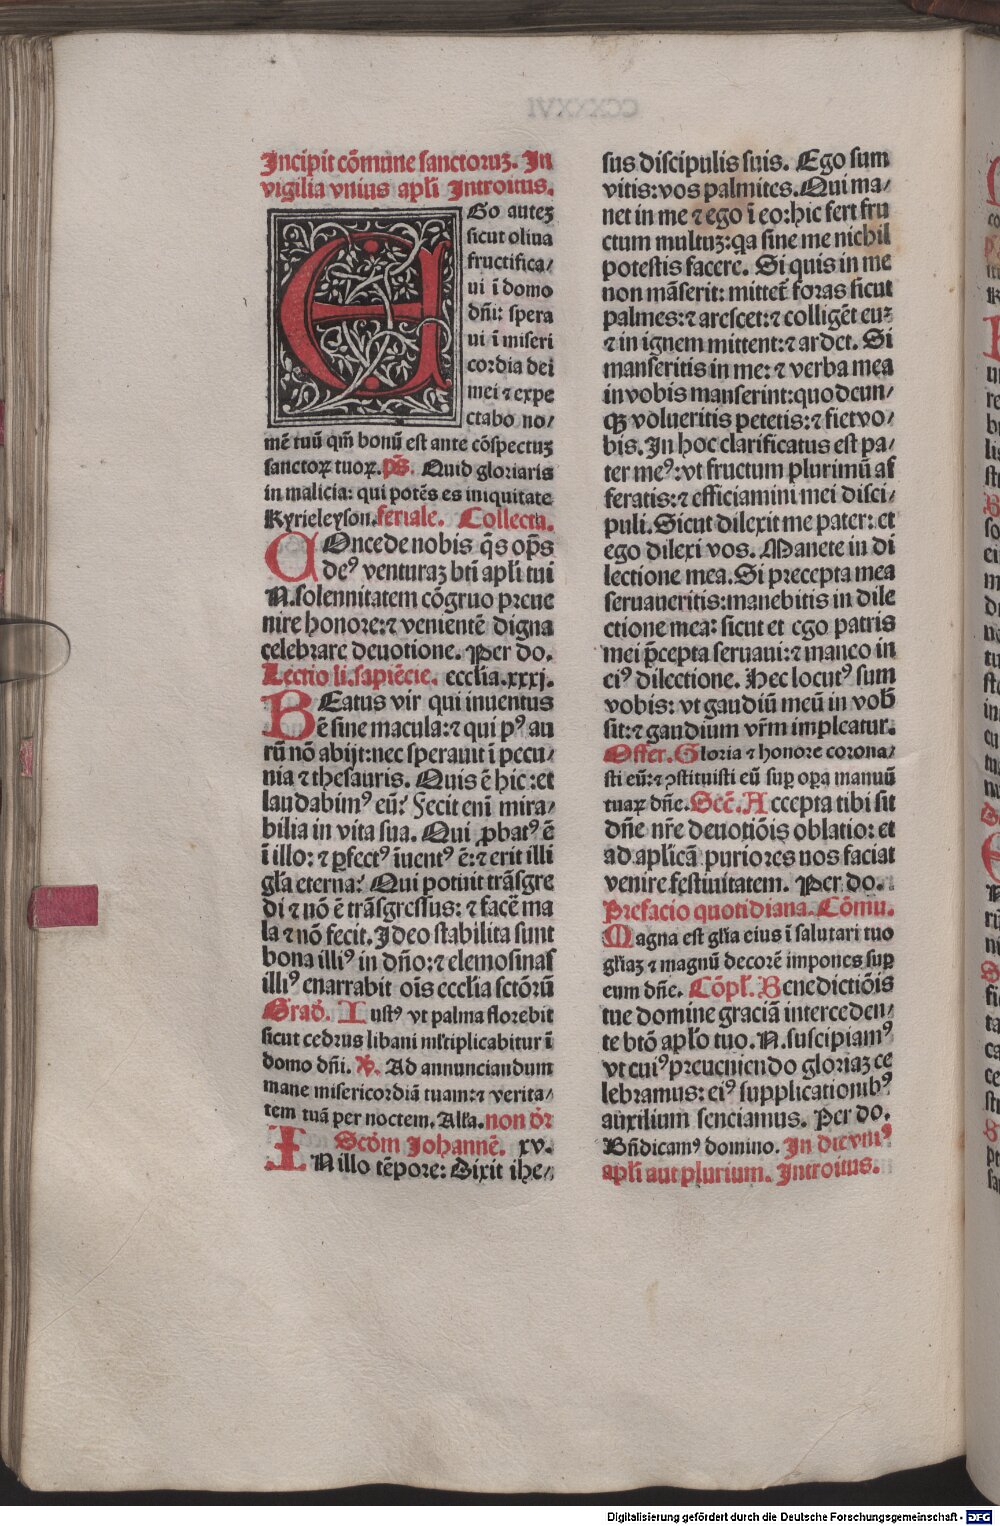 Incipit cōmune sanctoruꝫ. In
vigilia vnius apl̄i Introitus.
EGo auteꝫ
sicut oliua
fructifica/
ui ī domo
dn̄i: spera
ui ī miseri
cordia dei
mei ⁊ expe
ctabo no/
mē tuū qm̄ bonū est ante cōspectuꝫ
sanctoꝝ tuoꝝ. p̄s. Quid gloriaris
in malicia: qui potēs es iniquitate
Kyrieleyson. feriale. Collecta.
COncede nobis q̄s op̄s
deꝰ venturaꝫ bt̄i apl̄i tui
N. solennitatem cōgruo preue
nire honore: ⁊ venientē digna
celebrare deuotione. Per do.
Lectio li. sapiēcie. ecclia. xxxj.
BEatus vir qui inuentus
ē sine macula: ⁊ qui pꝰ au
rū nō abijt: nec sperauit ī pecu/
nia ⁊ thesauris. Quis ē hic: et
laudabimꝰ eū? Fecit eni mira/
bilia in vita sua. Qui ꝓbatꝰ ē
ī illo: ⁊ ꝑfectꝰ īuentꝰ ē: ⁊ erit illi
gl̄a eterna? Qui potuit trāsgre
di ⁊ nō ē trāsgressus: ⁊ facē ma
la ⁊ nō fecit. Ideo stabilita sunt
bona illiꝰ in dn̄o: ⁊ elemosinas
illiꝰ enarrabit oīs ecclīa sctōrū
Grad̄. Iustꝰ vt palma florebit
sicut cedrus libani mltiplicabitur ī
domo dn̄i. ℣. Ad annunciandum
mane misericordiā tuam: ⁊ verita/
tem tuā per noctem. Alla. non dr̄
Scdm Johannē. xv.
IN illo tēpore: Dixit ihe/
sus discipulis suis. Ego sum
vitis: vos palmites. Qui ma/
net in me ⁊ ego ī eo: hic fert fru
ctum multuꝫ: qa sine me nichil
potestis facere. Si quis in me
non māserit: mittet foras sicut
palmes: ⁊ arescet: ⁊ colligēt euꝫ
⁊ in ignem mittent: ⁊ ardet. Si
manseritis in me: ⁊ verba mea
in vobis manserint: quodcun/
qꝫ volueritis petetis: ⁊ fiet vo/
bis. In hoc clarificatus est pa/
ter meꝰ: vt fructum plurimū af
feratis: ⁊ efficiamini mei disci/
puli. Sicut dilexit me pater: et
ego dilexi vos. Manete in di
lectione mea. Si precepta mea
seruaueritis: manebitis in dile
ctione mea: sicut et ego patris
mei p̄cepta seruaui: ⁊ maneo in
eiꝰ dilectione. Hec locutꝰ sum
vobis: vt gaudiū meū in vob̄
sit: ⁊ gaudium vr̄m impleatur.
Offer. Gloria ⁊ honore corona/
sti eū: ⁊ ꝯstituisti eū suꝑ oꝑa manuū
tuaꝝ dn̄e. Secͤ. Accepta tibi sit
dn̄e nr̄e deuotiōis oblatio: et
ad aplicā puriores nos faciat
venire festiuitatem. Per do.
Prefacio quotidiana. Cōmu.
Magna est gl̄ia eius ī salutari tuo
gl̄iaꝫ ⁊ magnū decorē impones suꝑ
eum dn̄e. Cōpl̄. Benedictiōis
tue domine graciā interceden/
te btō apl̄o tuo. N. suscipiamꝰ
vt cuiꝰ preueniendo gloriaꝫ ce
lebramus: eiꝰ supplicationibꝰ
auxilium senciamus. Per do.
Bn̄dicamꝰ domino. In die vniꝰ
apl̄i aut plurium. Introitus.
Digitalisierung gefördert durch die Deutsche Forschungsgemeinschaft - DFG